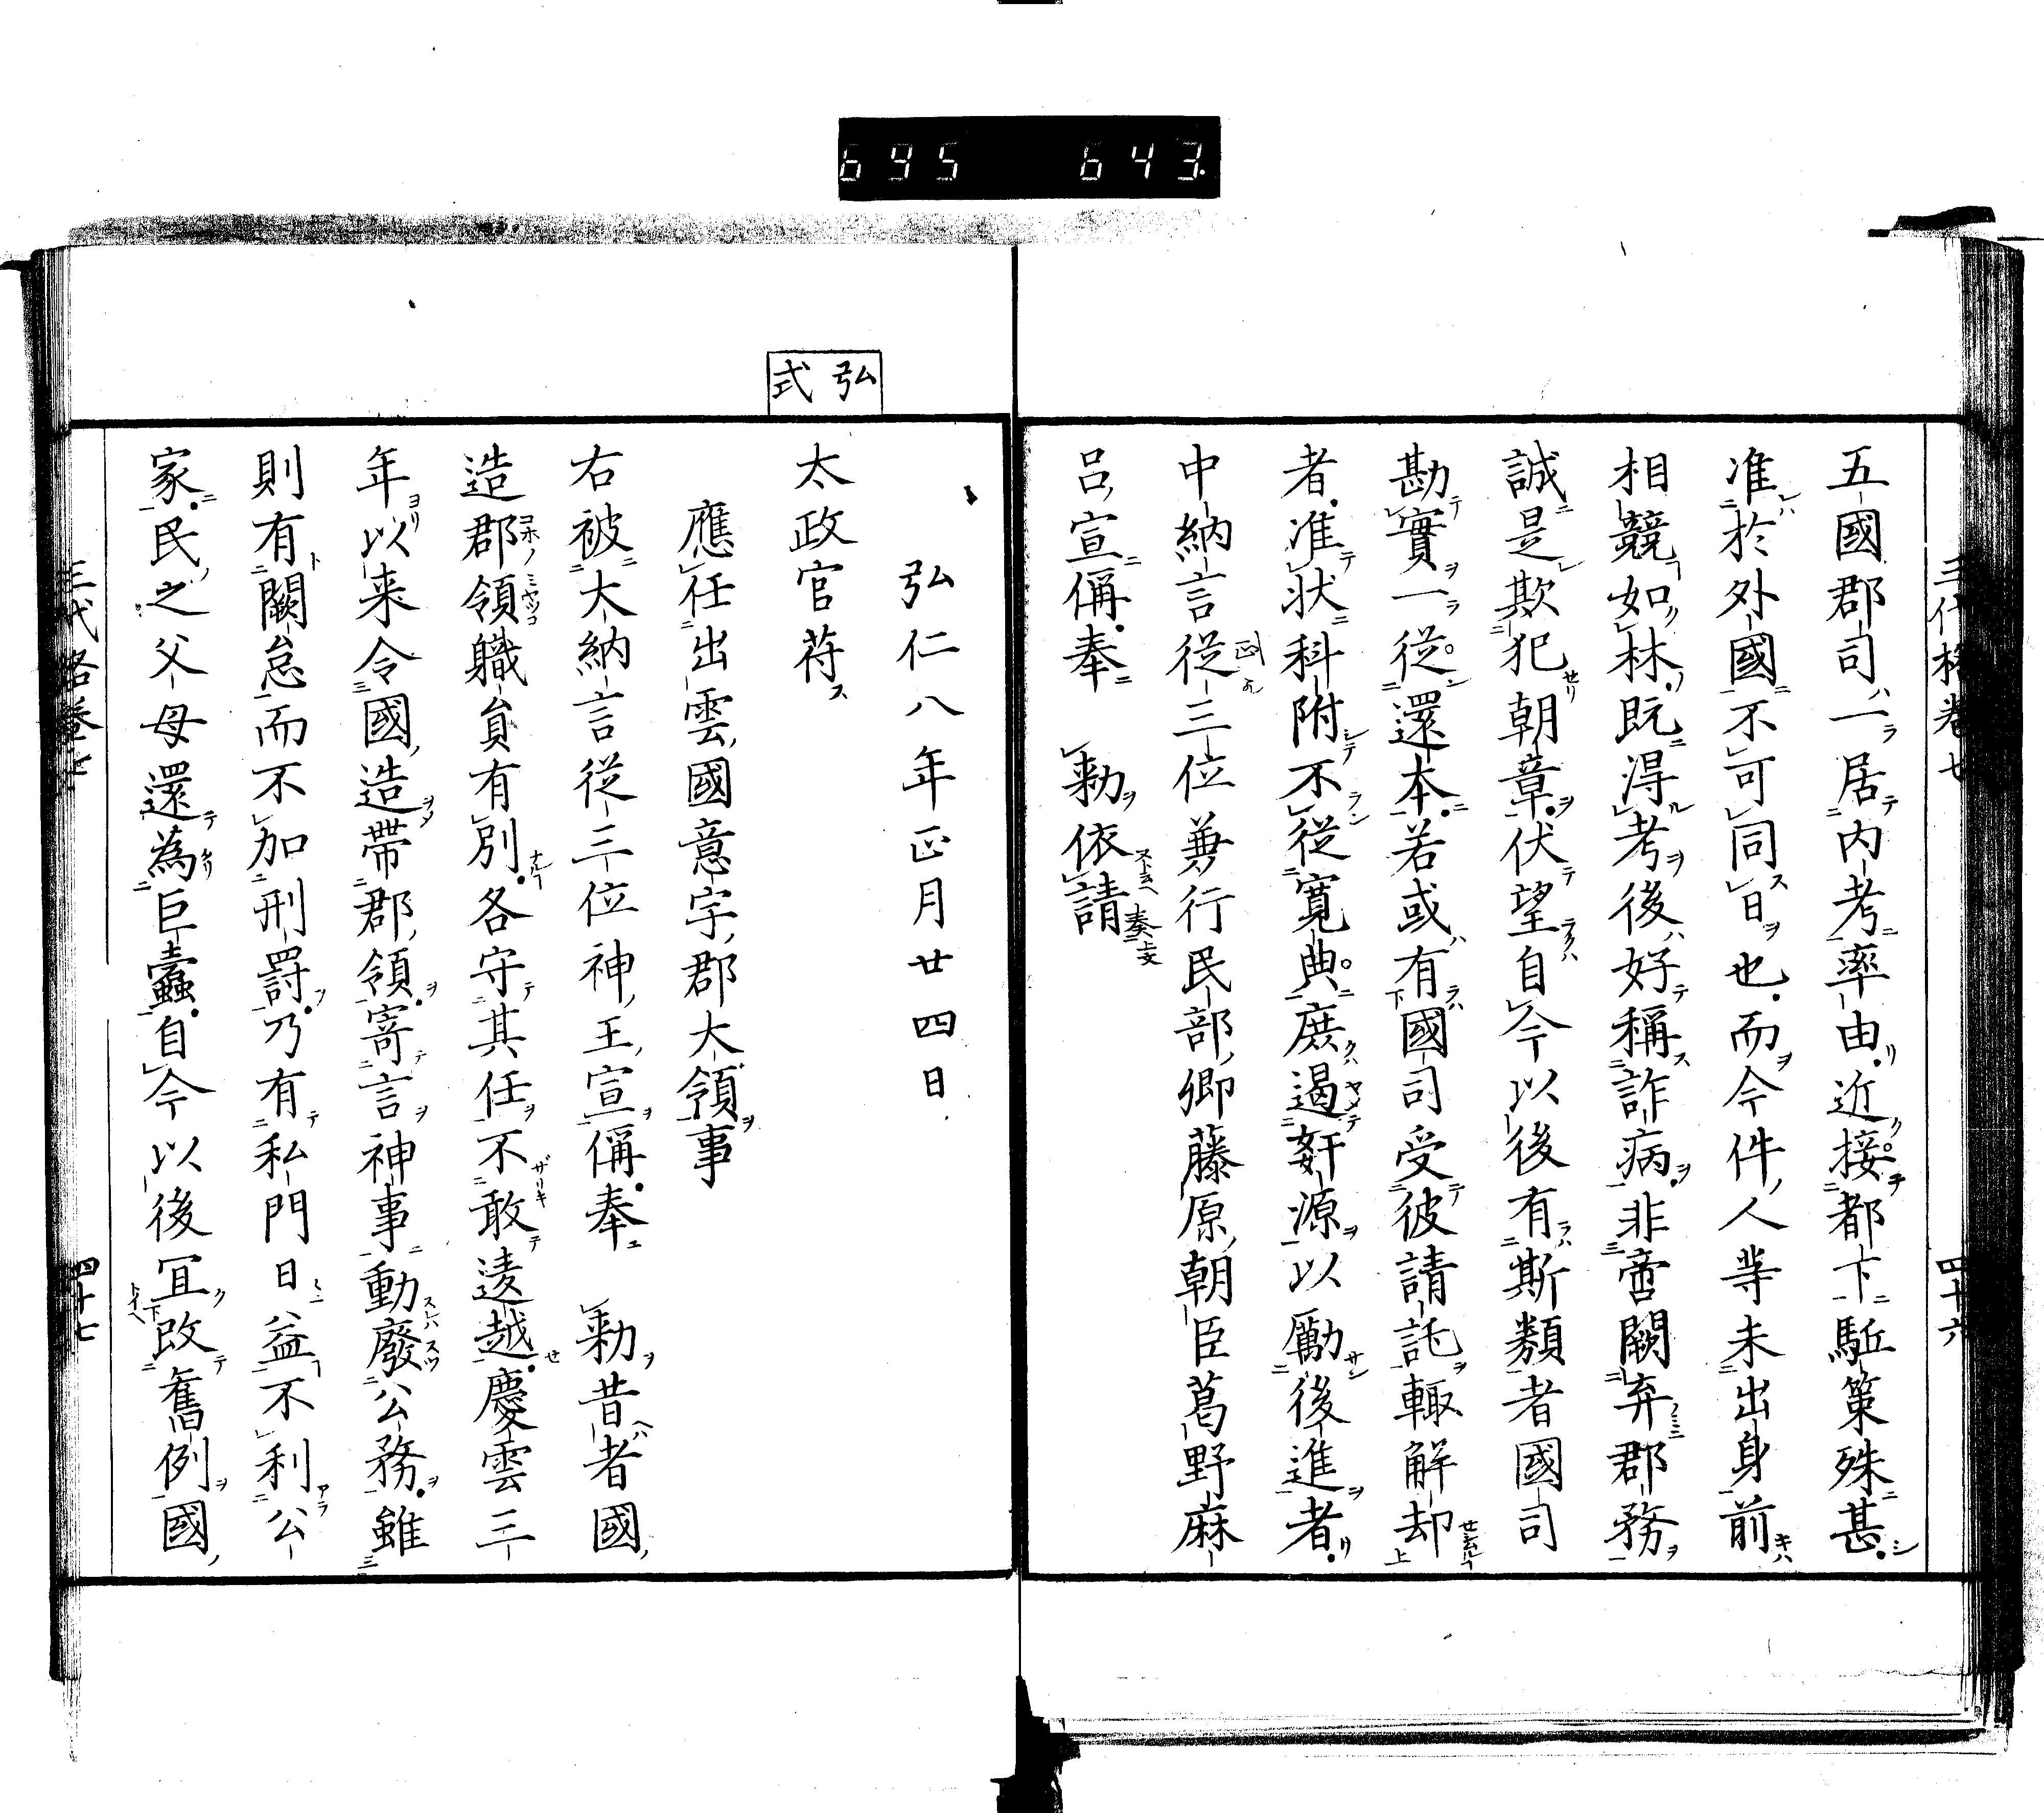 695 643.
三代格卷七 四十六
五國郡司一居内考率由近接都下駈策殊甚
准於外國不可同日也而今件人等未出身前
相競如林既得考後好稱詐病非啻闕弃郡務
誠是欺犯朝章伏望自今以後有斯類者國司
勘實一從還本若或有國司受彼請託輙解却
者准状科附不従寛典庶遏姧源以勵後進者
中納言従三位兼行民部卿藤原朝臣葛野麻
呂宣偁奉 勅依請
弘仁八年正月廿四日
弘式
太政官苻
應任出雲國意宇郡大領事
右被大納言従三位神王宣偁奉 勅昔者國
造郡領軄貟有別各守其任不敢逺越慶雲三
年以来令國造帶郡領寄言神事動廢公務雖
則有闕怠而不加刑罸乃有私門日益不利公
家民之父母還為巨蠹自今以後冝改舊例國
三代格卷七 四十七